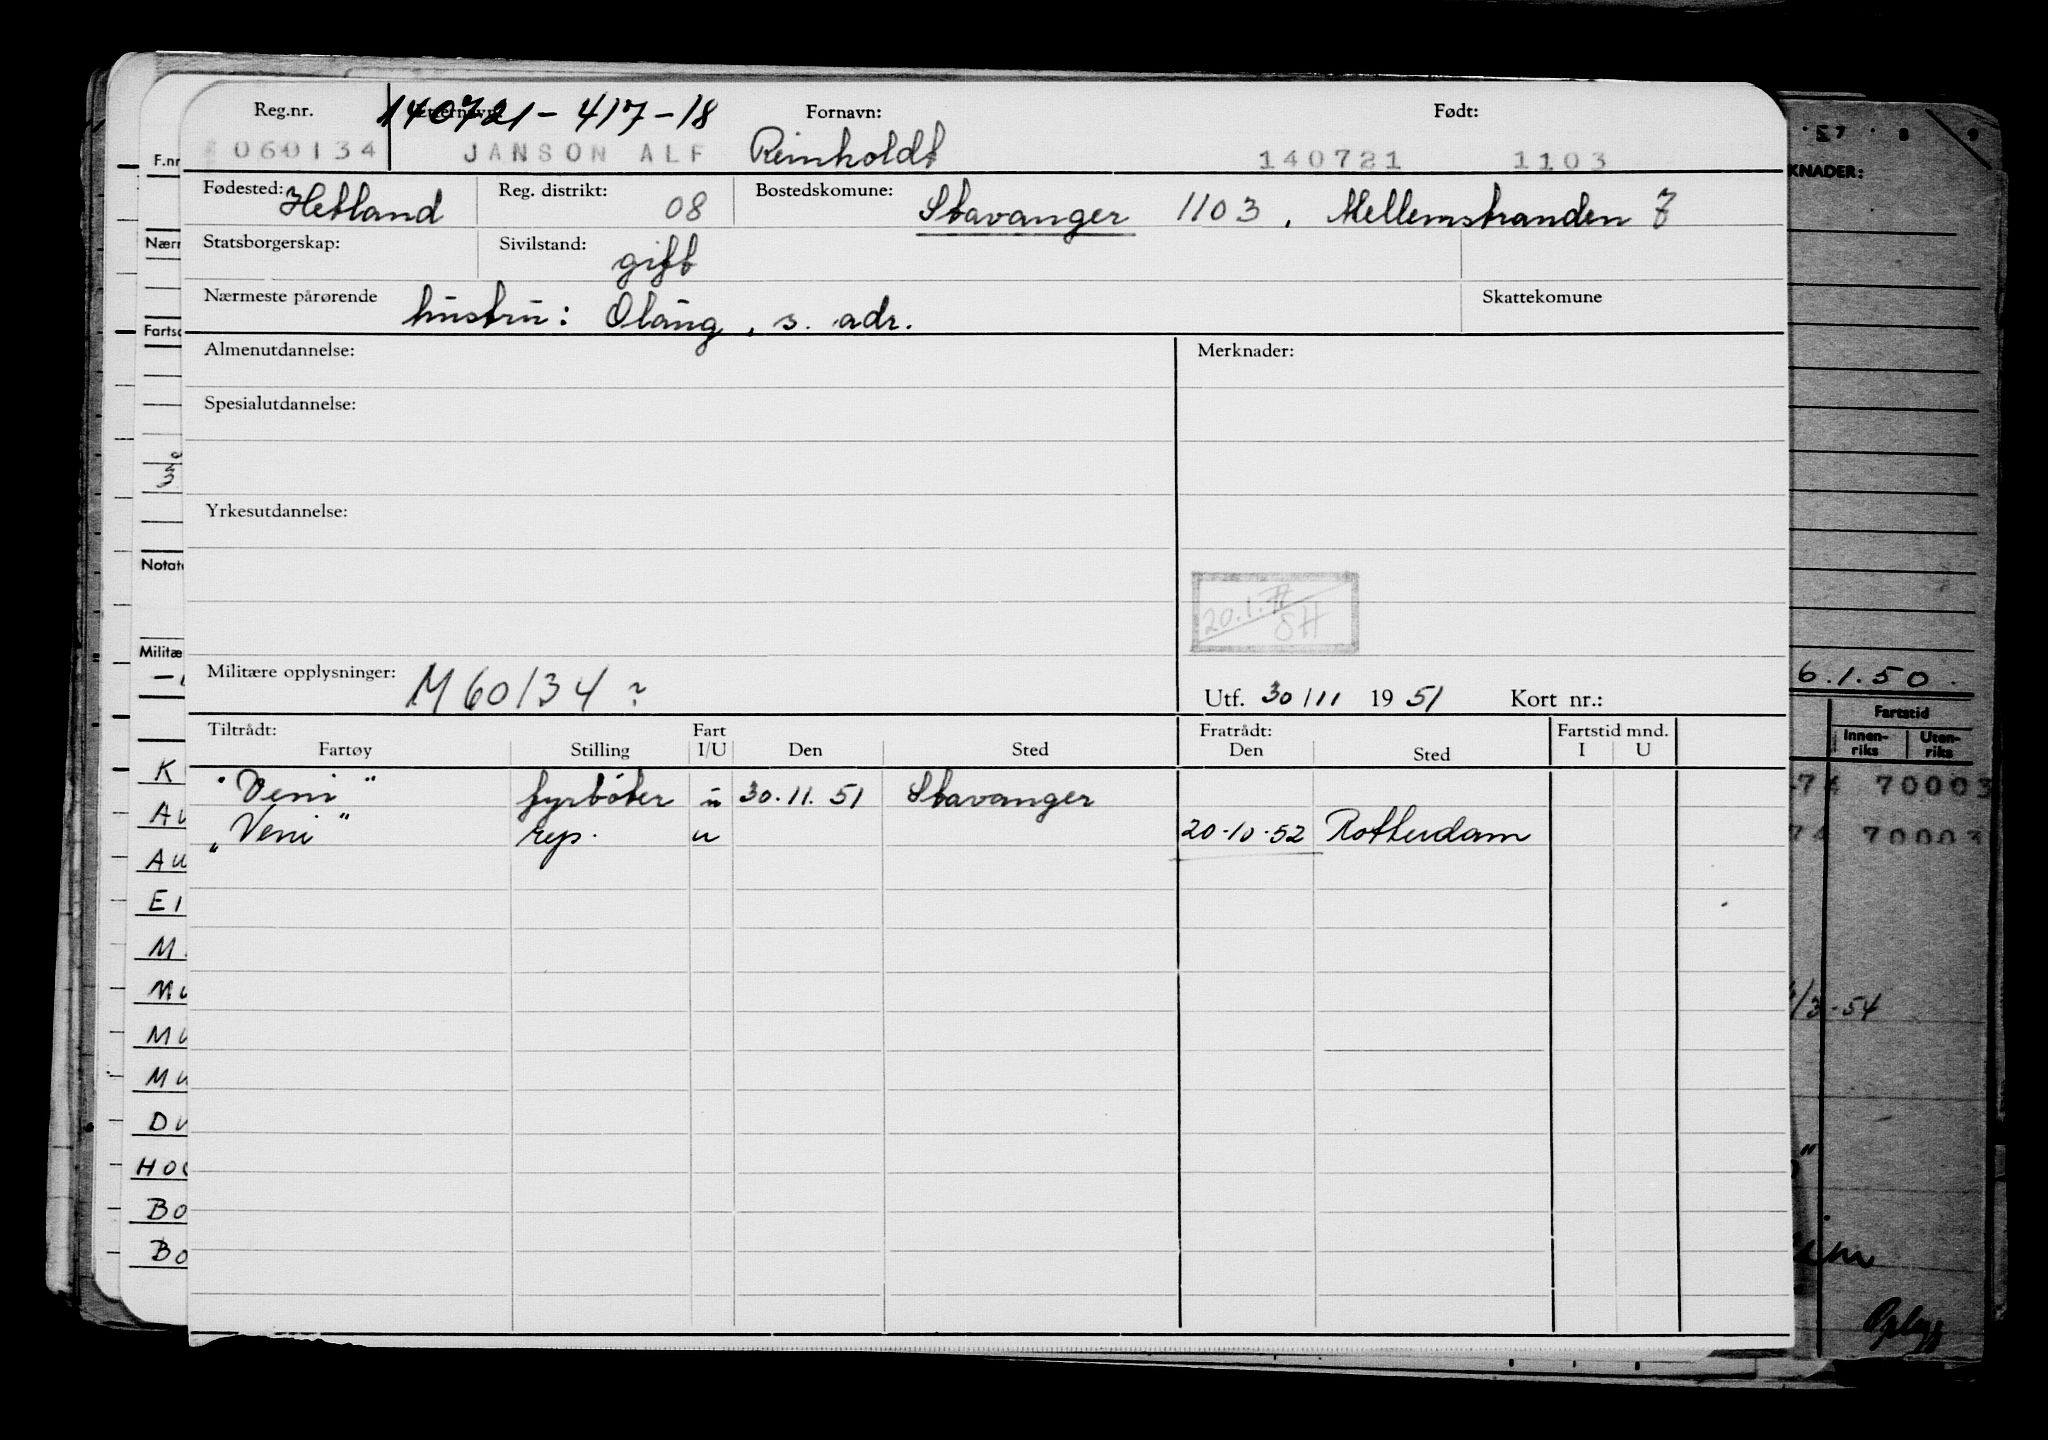 Reg.nr. 140721-417-18 Fornavn: Født:
060134 JANSON ALF Reinholdt 140721 1103
Fødested: Hetland Reg. distrikt: 08 Bostedskomune: Stavanger 1103, Mellemstranden 7
Statsborgerskap: Sivilstand: gift
Nærmeste pårørende hustru: Olaug, s. adr. Skattekomune
Almenutdannelse: Merknader:
Spesialutdannelse:
Yrkesutdannelse:
20.1.77
Militære opplysninger: M60134 ?
Utf. 30/11 1951 Kort nr.:
Tiltrådt: Fart Fratrådt: Fartstid mnd.
Fartøy Stilling I/U Den Sted Den Sted I U
"Veni" fyrbøter u 30.11.51 Stavanger
"Veni" rep. u 20-10-52 Rotterdam
F.nr
Nærm
Fartsd
3
Notat
Militæ
K
Au
Au
EI
M.
Mu
Mu
Mu
Du
HO
BO
BO
57 8 9
KNADER:
6.1.50.
Fartstid
Innen-riks Uten-riks
74 70003
74 70003
/3-54